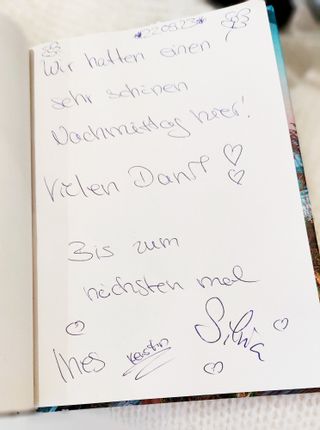 *22.09.23*
Wir hatten einen
sehr schönen
Nachmittag hier!
Vielen Dank
Bis zum
nächsten mal
Ines Silvia